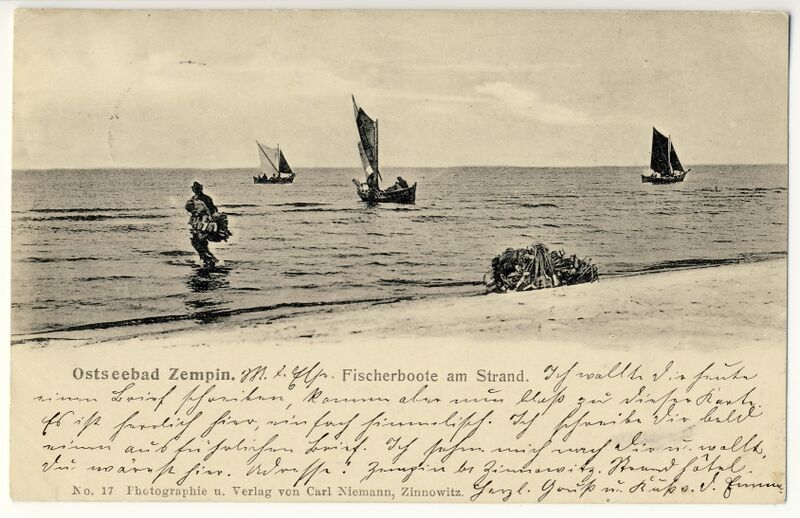 Ostseebad Zempin. M. l. Else. Fischerboote am Strand. Ich wollte Dir heute
einen Brief schreiben, komme aber nun bloß zu dieser Karte.
Es ist herrlich hier, einfach himmlisch. Ich schreibe Dir bald
einen ausführlichen Brief. Ich sehne mich nach Dir u. wollt,
Du wärest hier. Adresse: Zempin bei Zinnowitz. Strand Hôtel.
No. 17 Photographie u. Verlag von Carl Niemann, Zinnowitz. Herzl. Gruß u. Kuß v. D. Emma